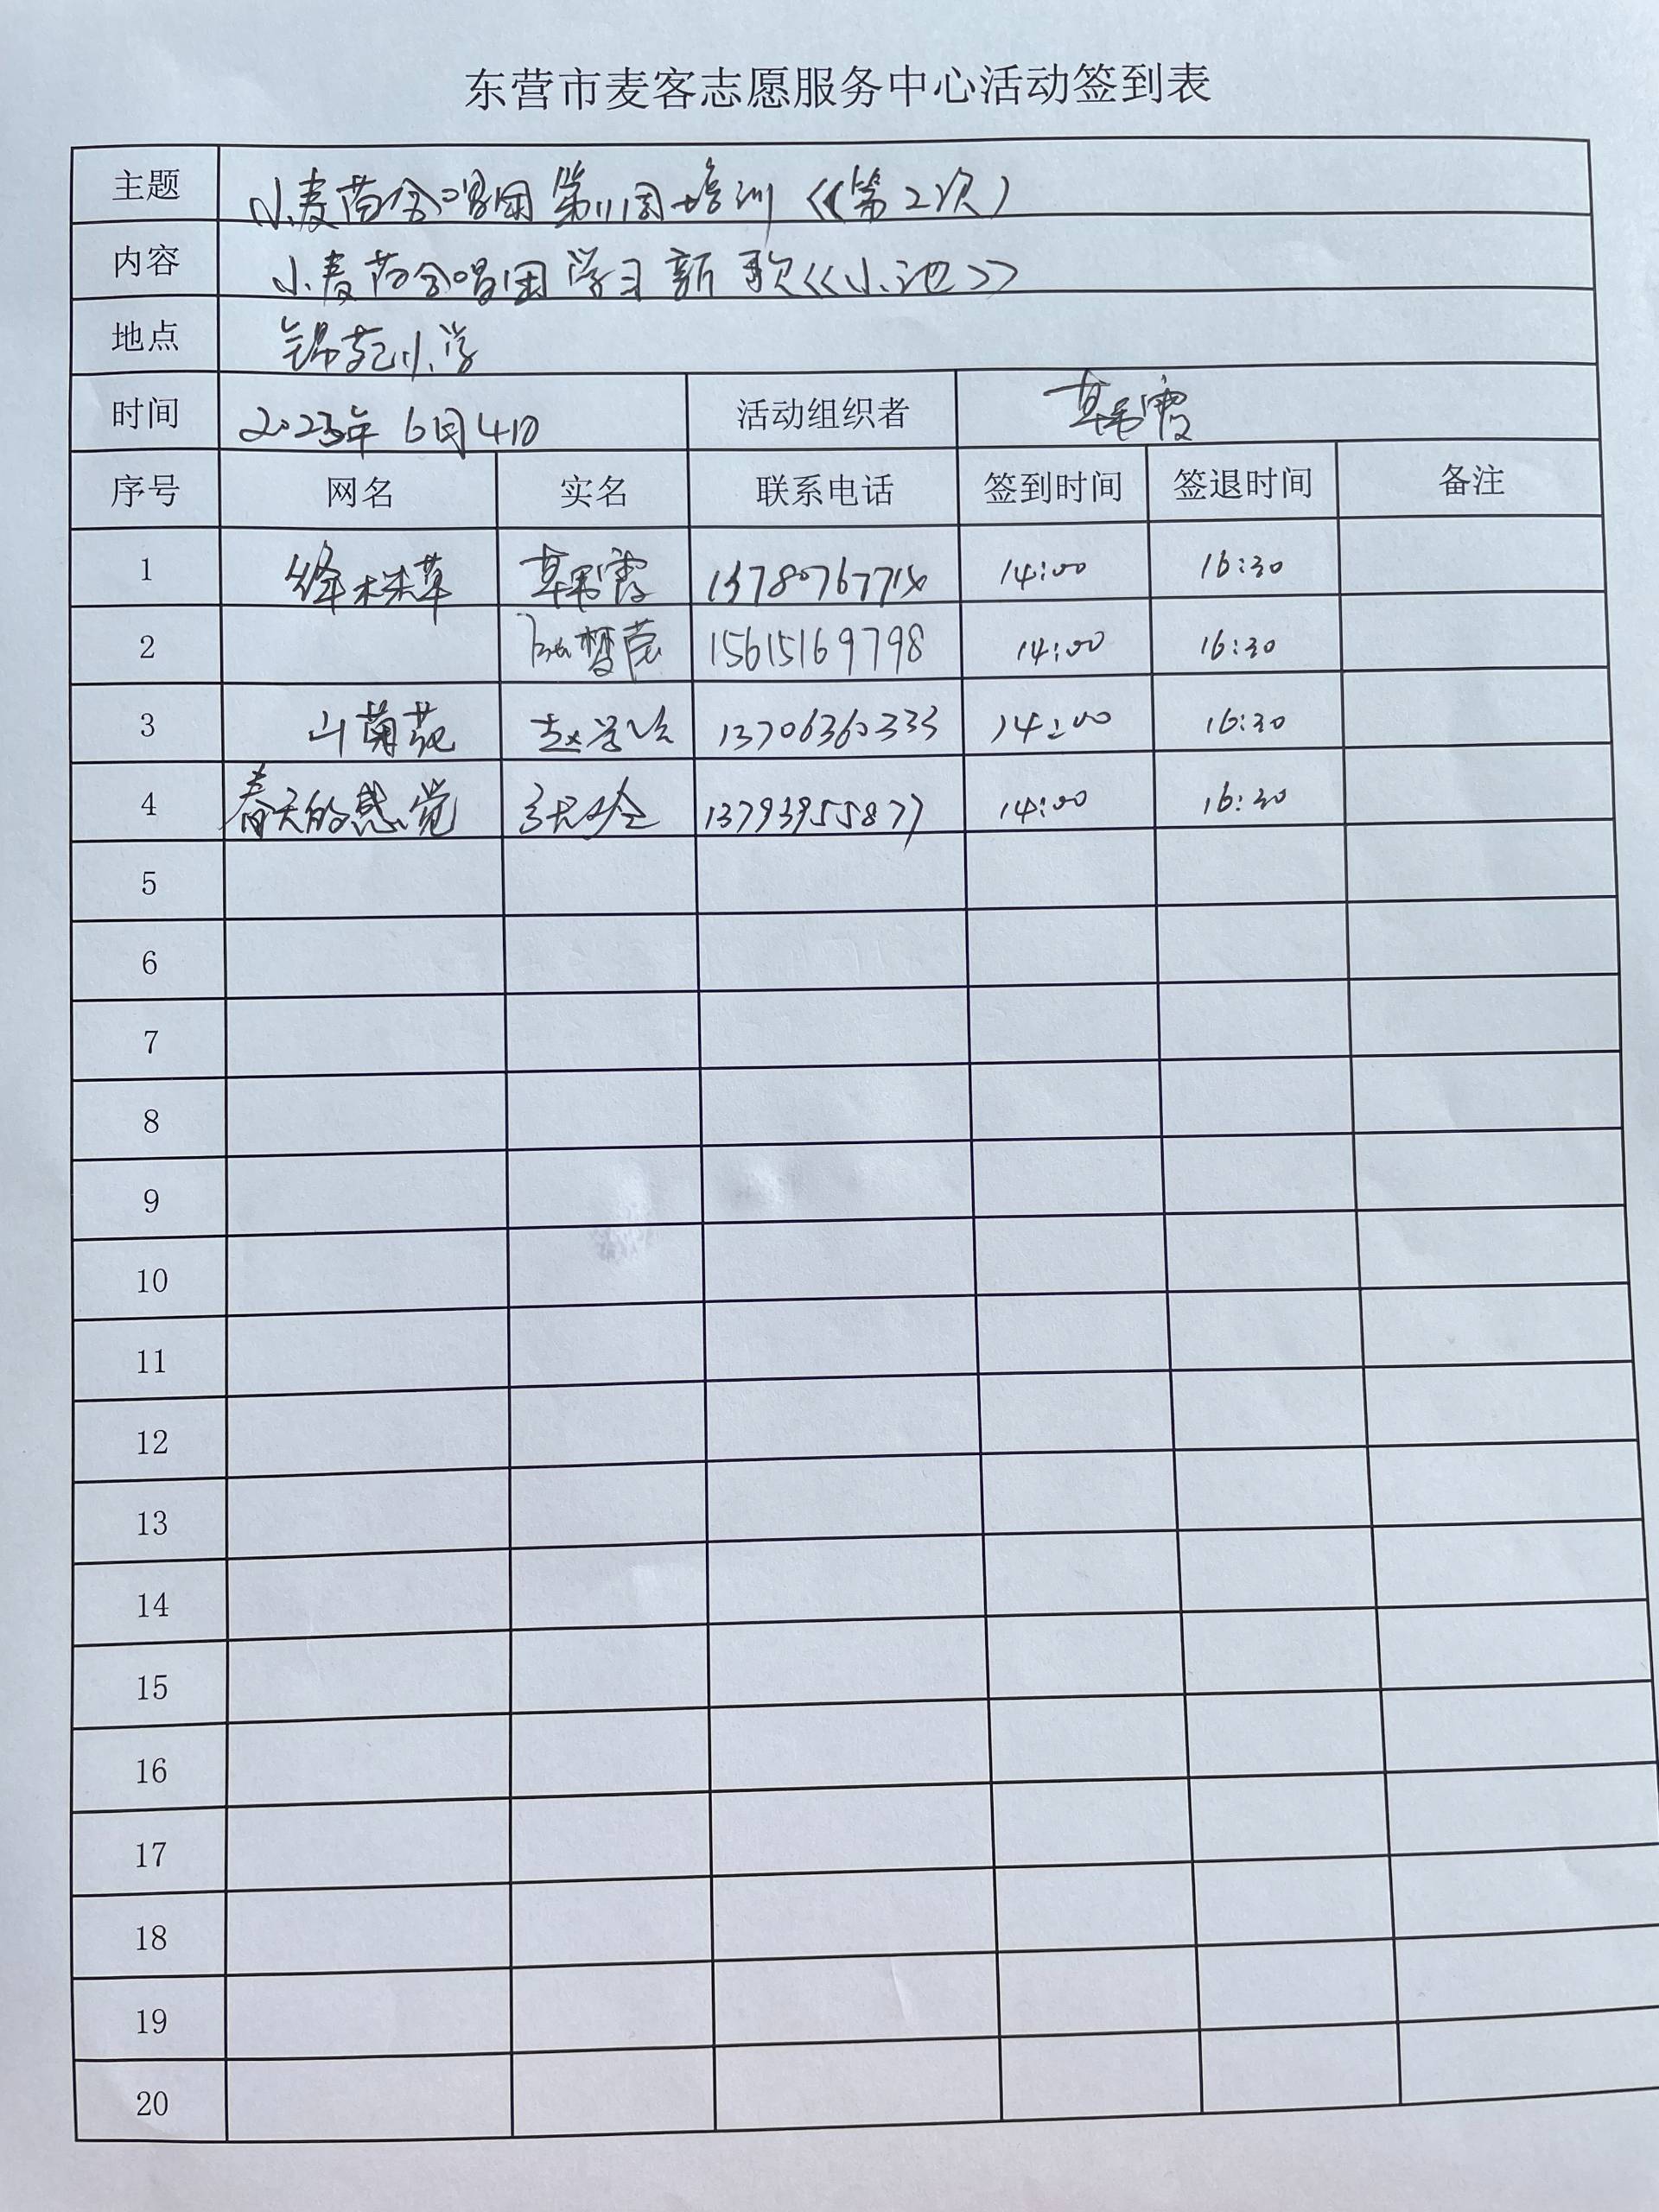 东营市麦客志愿服务中心活动签到表
主题 小麦苗合唱团第11周培训《(第2次)
内容 小麦苗合唱团学习新歌《小池》
地点 锦苑小学
时间 2023年6月4日 活动组织者
序号 网名 实名 联系电话 签到时间 签退时间 备注
1 绛株草 14:00 16:30
2 15615169798 14:00 16:30
3 山菊苑 13706360333 14:00 16:30
4 春天的感觉 13793955877 14:00 16:30
5
6
7
8
9
10
11
12
13
14
15
16
17
18
19
20